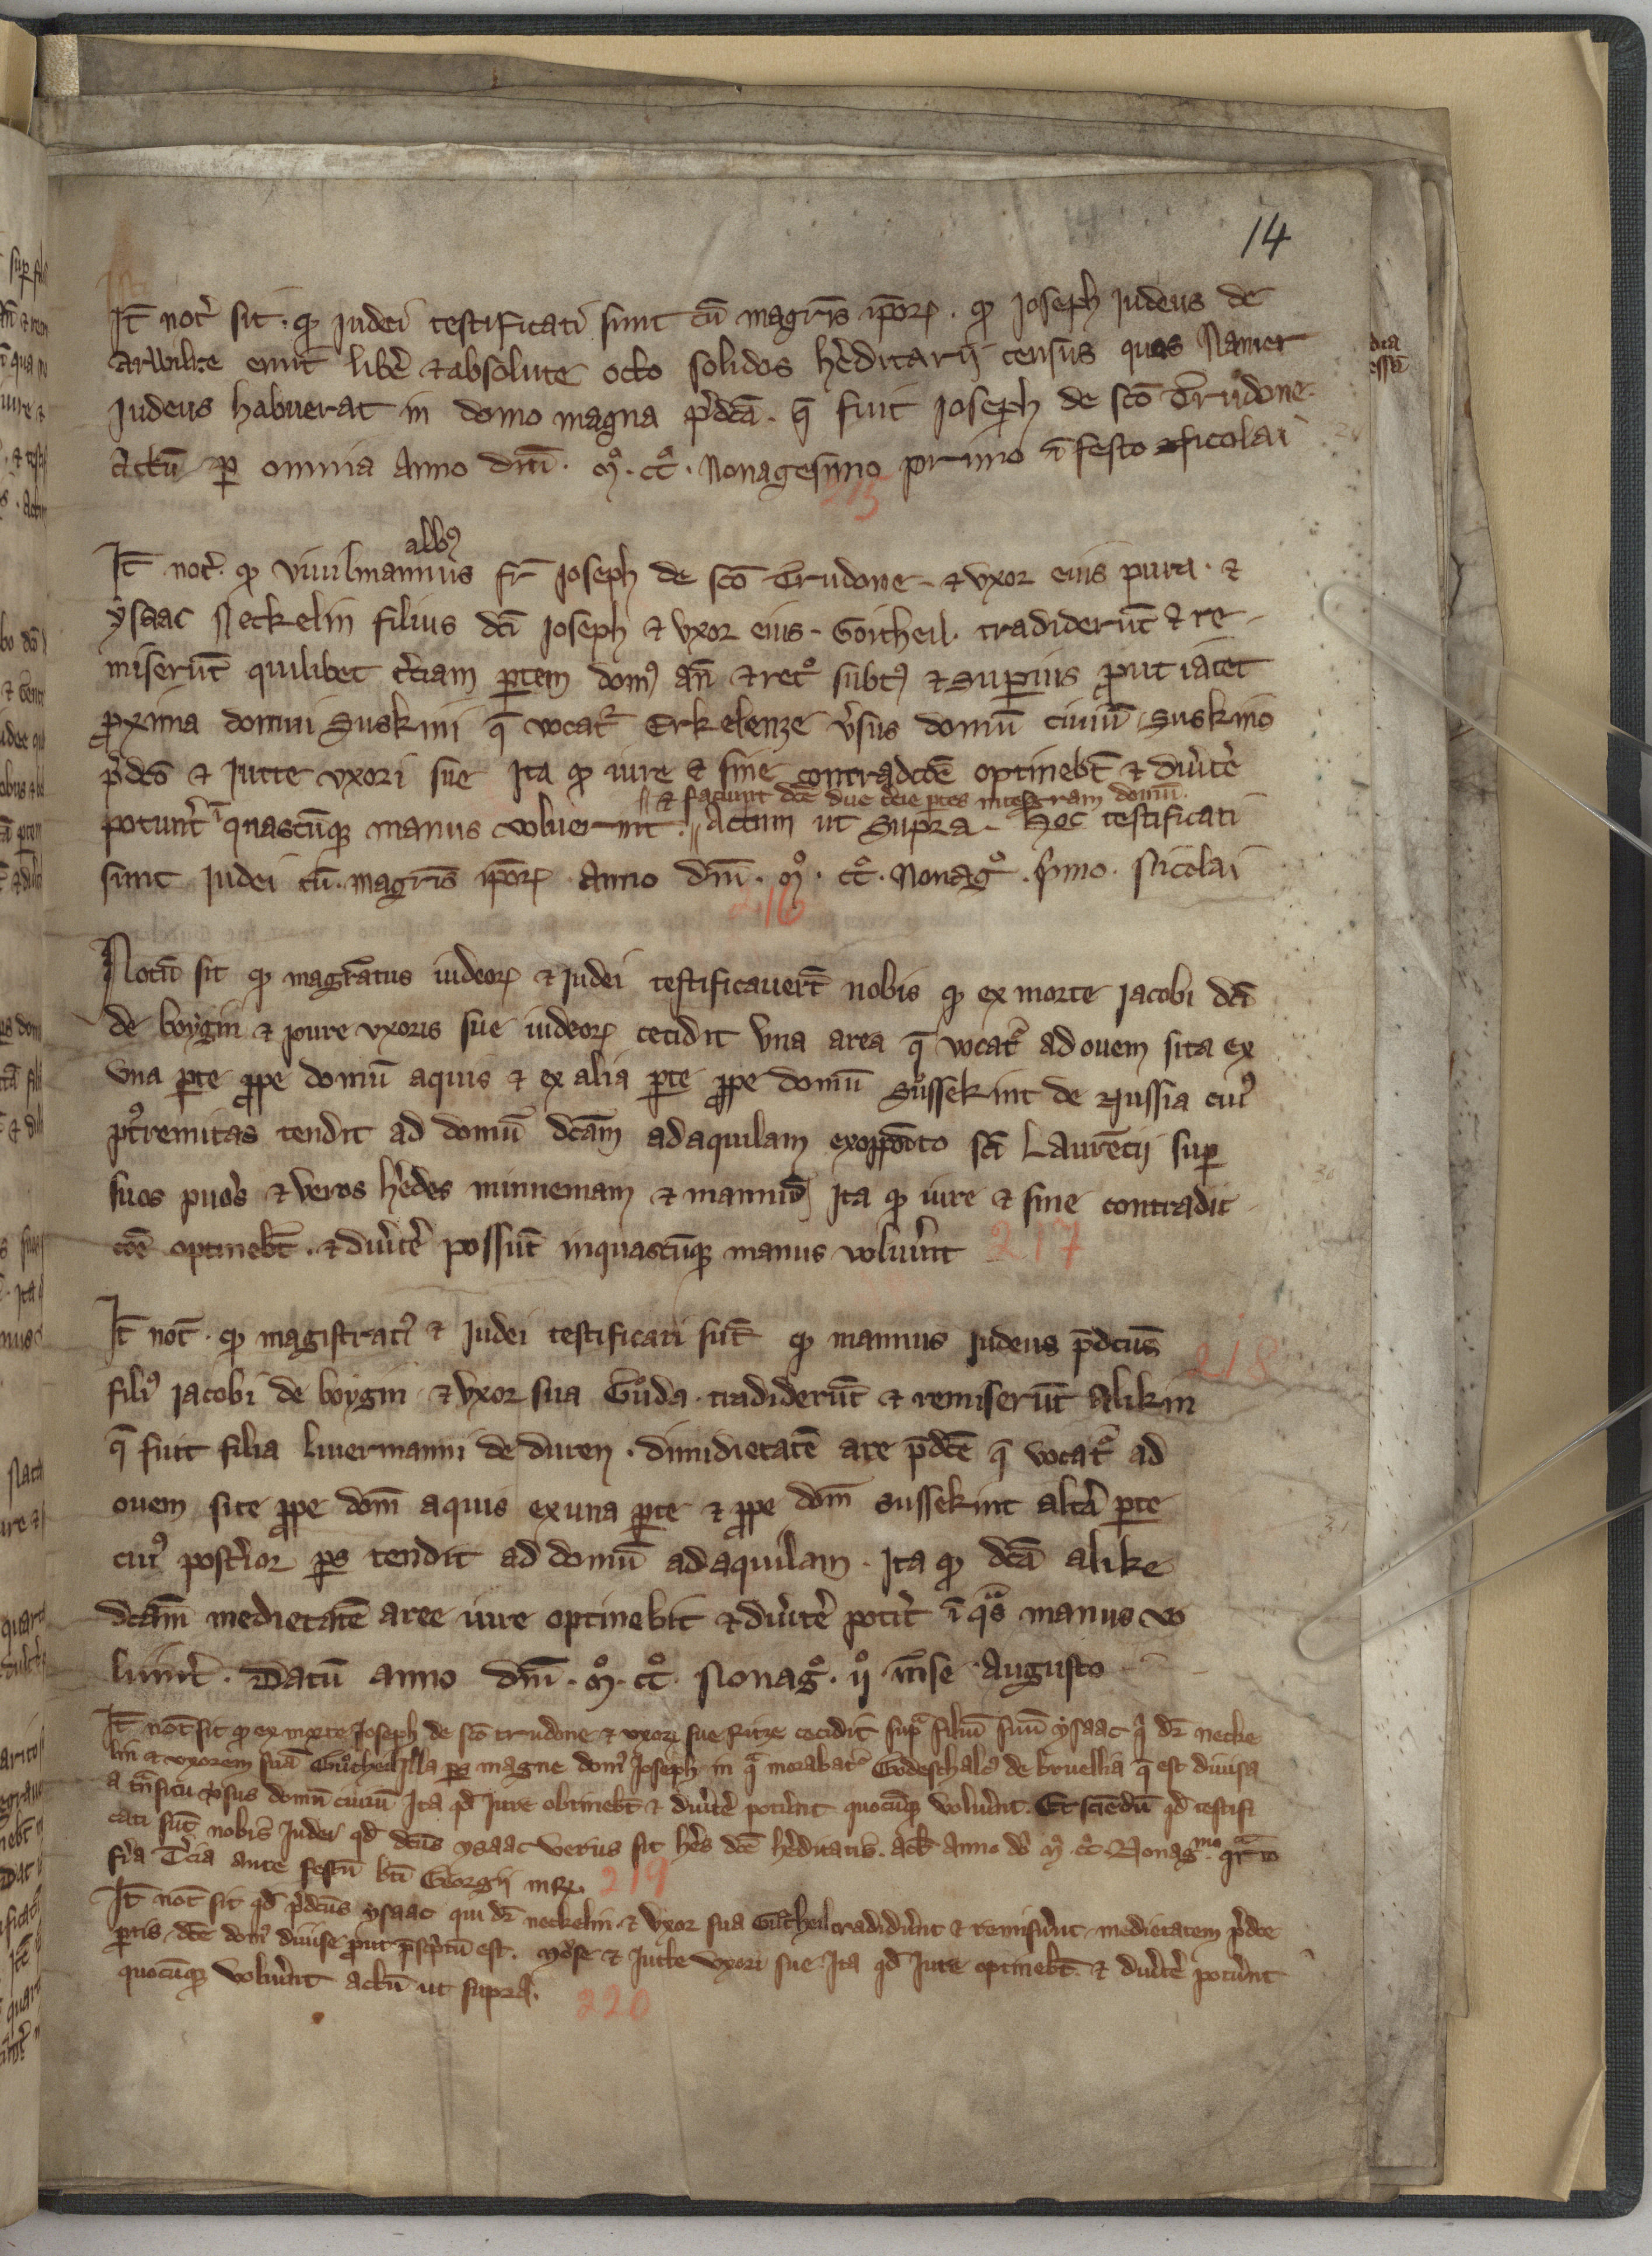 14
It̄ not̉ sit · ꝙ Judei testificati sunt cū magr̄is ip̄oꝝ · ꝙ Joseph Judeus de
arwilre emit lib̉e ⁊ absolute octo solidos h̉editarij census quos Namer
Judeus habuerat in domo magna p̉dc̄a · q̄ fuit Joseph de sc̄o Trudone ·
Actū ꝑ omnia Anno dn̄i · Mͦ · CCͦ · Nonagesimo primo ī festo Nicolai
215
albꝰ
It̄ not̉ · ꝙ vivilmannus fr̄ Joseph de sc̄o Trudone · ⁊ vxor eius pura · ⁊
ysaac Neckelin filius dc̄i Joseph ⁊ vxor eius · Goitheil · tradiderūt ⁊ re
miserūt quilibet t̉ciam ꝑtem domꝰ an̄ ⁊ retͦ subtꝰ ⁊ supius ꝓut iacet
ꝓxima domui Suskini q̄ vocat᷑ Erkelenze v̉sus domū ciuiū Suskino
p̉dc̄o ⁊ Jutte vxori sue Ita ꝙ iure ⁊ sine contradc̄oe optinebt̄ ⁊ diủtẻ
⁊ faciunt dc̄e due t̉cie ꝑtes integram domū
potunt̉ ī quascūqꝫ manus voluerint · // Actum ut supra · hoc testificati
sunt Judei cū magr̄is ip̄oꝝ Anno dn̄i · Mͦ · CCͦ · Nonagͦ · p̉mo · Nicolai
216
Notū sit ꝙ magr̄atus iudeoꝝ ⁊ Judei testificauer̄t nobis ꝙ ex morte Jacobi dc̄i
de boygin ⁊ Joure vxoris sue iudeoꝝ cecidit vna area q̄ vocat᷑ ad ouem sita ex
vna ꝑte ꝓpe domū aquis ⁊ ex alia ꝑte ꝓpe domū Sussekint de Russia cuiꝰ
pͦtremitas tendit ad domū dc̄am ad aquilam ex oppoīto sc̄i Laurēcij suꝑ
suos puỏs ⁊ veros h̉edes minnemam ⁊ mannū Ita ꝙ iure ⁊ sine contradic
c̄oe optinebt̄ · ⁊ diủtẻ possūt in quascūqꝫ manus volủint 217
It̄ not̄ · ꝙ magistratꝰ ⁊ Judei testificati sūt ꝙ mannus Judeus p̄dc̄us 218
filiꝰ Jacobi de boygin ⁊ vxor sua Gůda · tradiderūt ⁊ remiserūt Alikin
q̄ fuit filia liuermanni de duren · dimidietatē are p̄dc̄e q̄ vocat᷑ ad
ouem site ꝓpe dom̄ aquis ex una ꝑte ⁊ ꝓpe dom̄ sussekint alt̉a ꝑte
cuiꝰ post̉ior ꝑs tendit ad domū ad aquilam · Ita ꝙ dc̄a alike
dc̄am medietatē aree iure optinebit ⁊ diủtẻ pot̉it ī qͣs manus vo
luirit̉ · Datū anno dn̄i · Mͦ · CCͦ · Nonagͦ · ijͦ · mēse Augusto
It̄ not̄ sit ꝙ ex morte Joseph de sc̄o trudone ⁊ vxoꝝ sue Ritze cecidit supͣ filiū suū ysaac qͥ dr̄ necke
lin ⁊ vxorem suā Gůtheil Illa ꝑs magne domꝰ Joseph in qͣ morabat᷑ Godeschalcꝰ de bruellia q̄ est diuisa
a tn̄situ v̉sus domū ciuiū Ita qd̄ Jure obtinebt̄ ⁊ diủtẻ pot̉unt quocūqꝫ volủint. Et sciēdū qd̄ testifi
cati sūt nobis Judei qd̄ dc̄us ysaac verus sit h̉es dc̄e h̉editatis. Act̄ Anno dͦ Mͦ CCͦ Nonagᵐᵒ · qͣrto
f̉ia T̉cia ante festū bt̄i Georgij mr̄is. 219
It̄ not̄ sit qd̄ p̉dc̄us ysaac qui dr̄ neckelin ⁊ vxor sua Gůtheil tradid̉unt ⁊ remis̉unt medietatem p̉dc̄e
ꝑtis dc̄e domꝰ diuise ꝓut p̄sc̉ptū est. Moͤse ⁊ Jutte vxori sue Ita qd̄ Jure optinebt̄ ⁊ diủtẻ pot̉unt
quocūqꝫ volủint actū ut supra.
220